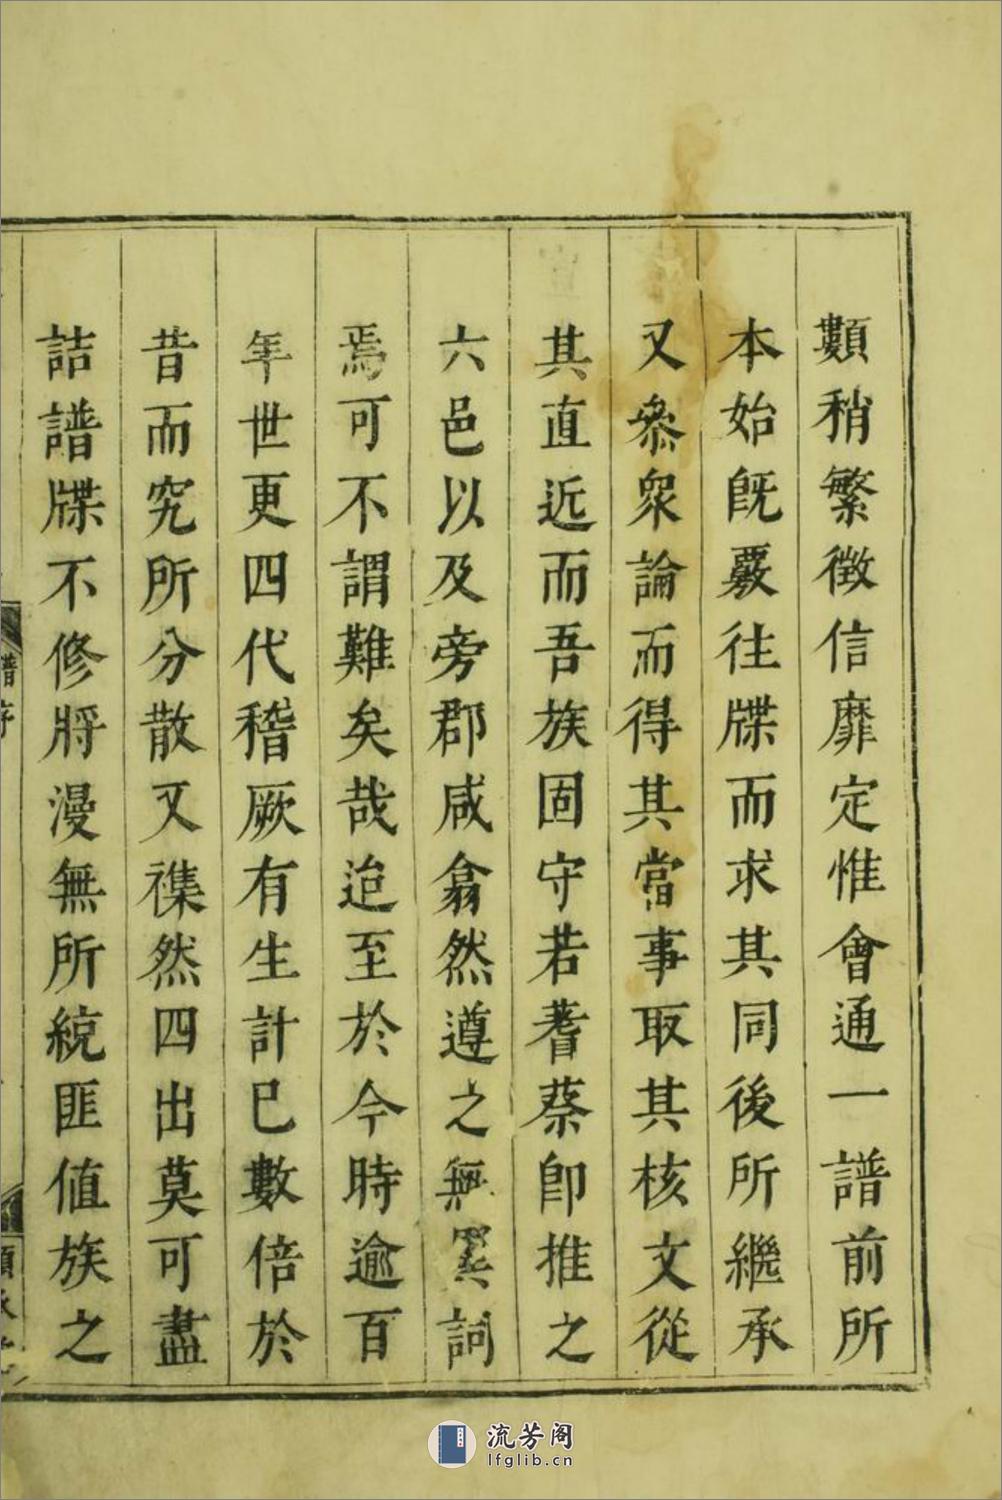 類稍繁徵信靡定惟會通一譜前所
本始旣覈往牒而求其同後所繼承
又叅衆論而得其當事取其核文從
其直近而吾族固守若蓍蔡卽推之
六邑以及旁郡咸翕然遵之無異詞
焉可不謂難矣哉迨至於今時逾百
年世更四代稽厥有生計已數倍於
昔而究所分散又襍然四出莫可盡
詰譜牒不修將漫無所統匪値族之
譜序
流芳阁
lfglib.cn